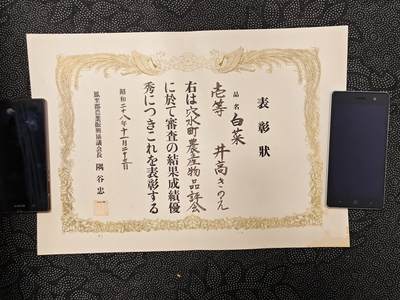 表彰狀
品名 白菜
壱等 井高きのえ
右は穴水町農産物品評会
に於て審査の結果成績優
秀につきこれを表彰する
昭和二十八年十一月二十三日
鳳至郡農業振興協議会長 隅谷忠